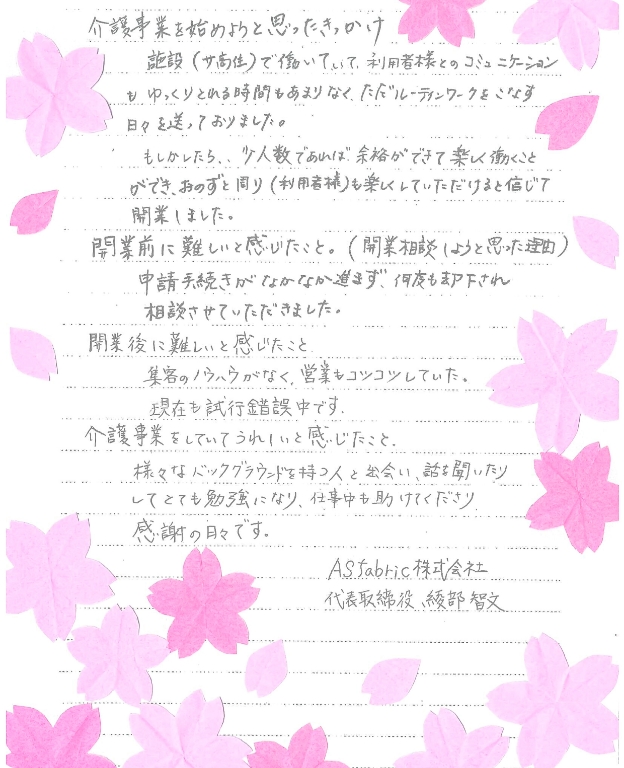 介護事業を始めようと思ったきっかけ
施設(サ高住)で働いていて、利用者様とのコミュニケーション
も ゆっくりとれる時間もあまりなく、ただただルーティンワークをこなす
日々を送っておりました。
もしかしたら、、少人数であれば 余裕ができて楽しく働くこと
ができ、おのずと周り(利用者様)も楽しくしていただけると信じて
開業しました。
開業前に難しいと感じたこと。(開業相談しようと思った理由)
申請手続きがなかなか進まず、何度も却下され
相談させていただきました。
開業後に難しいと感じたこと
集客のノウハウがなく、営業もコツコツしていた。
現在も試行錯誤中です。
介護事業をしていてうれしいと感じたこと.
様々なバックグラウンドを持つ人と出会い、話を聞いたり
してとても勉強になり、仕事中も助けてくださり
感謝の日々です。
ASfabric株式会社
代表取締役、綾部 智文